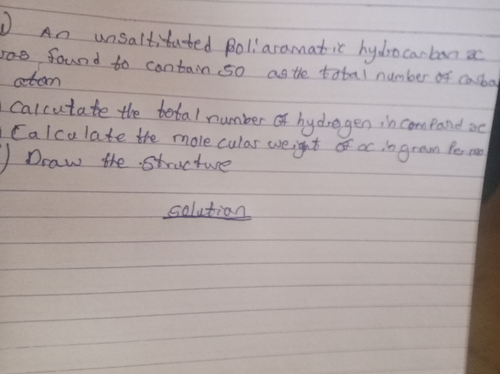 An unsaltituted poliaramatic hydrocarbon x
was found to contain 50 as the total number of carbon
atom
Calculate the total number of hydrogen in compand x
Calculate the molecular weight of x in gram per mo
) Draw the structure
solution